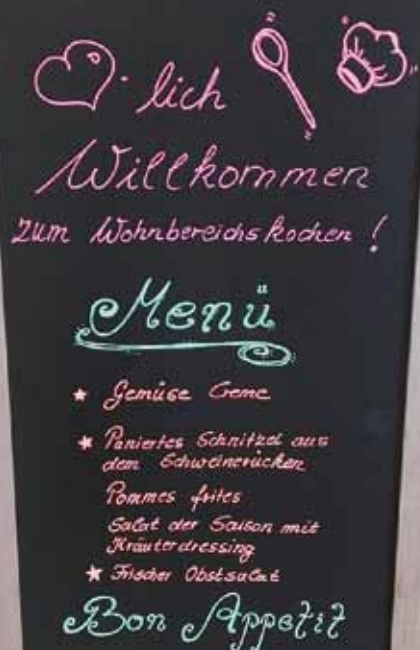 lich
Willkommen
zum Wohnbereichskochen !
Menü
Gemüse Creme
Paniertes Schnitzel aus
dem Schweinerücken
Pommes frites
Salat der Saison mit
Kräuterdressing
Frischer Obstsalat
Bon Appetit